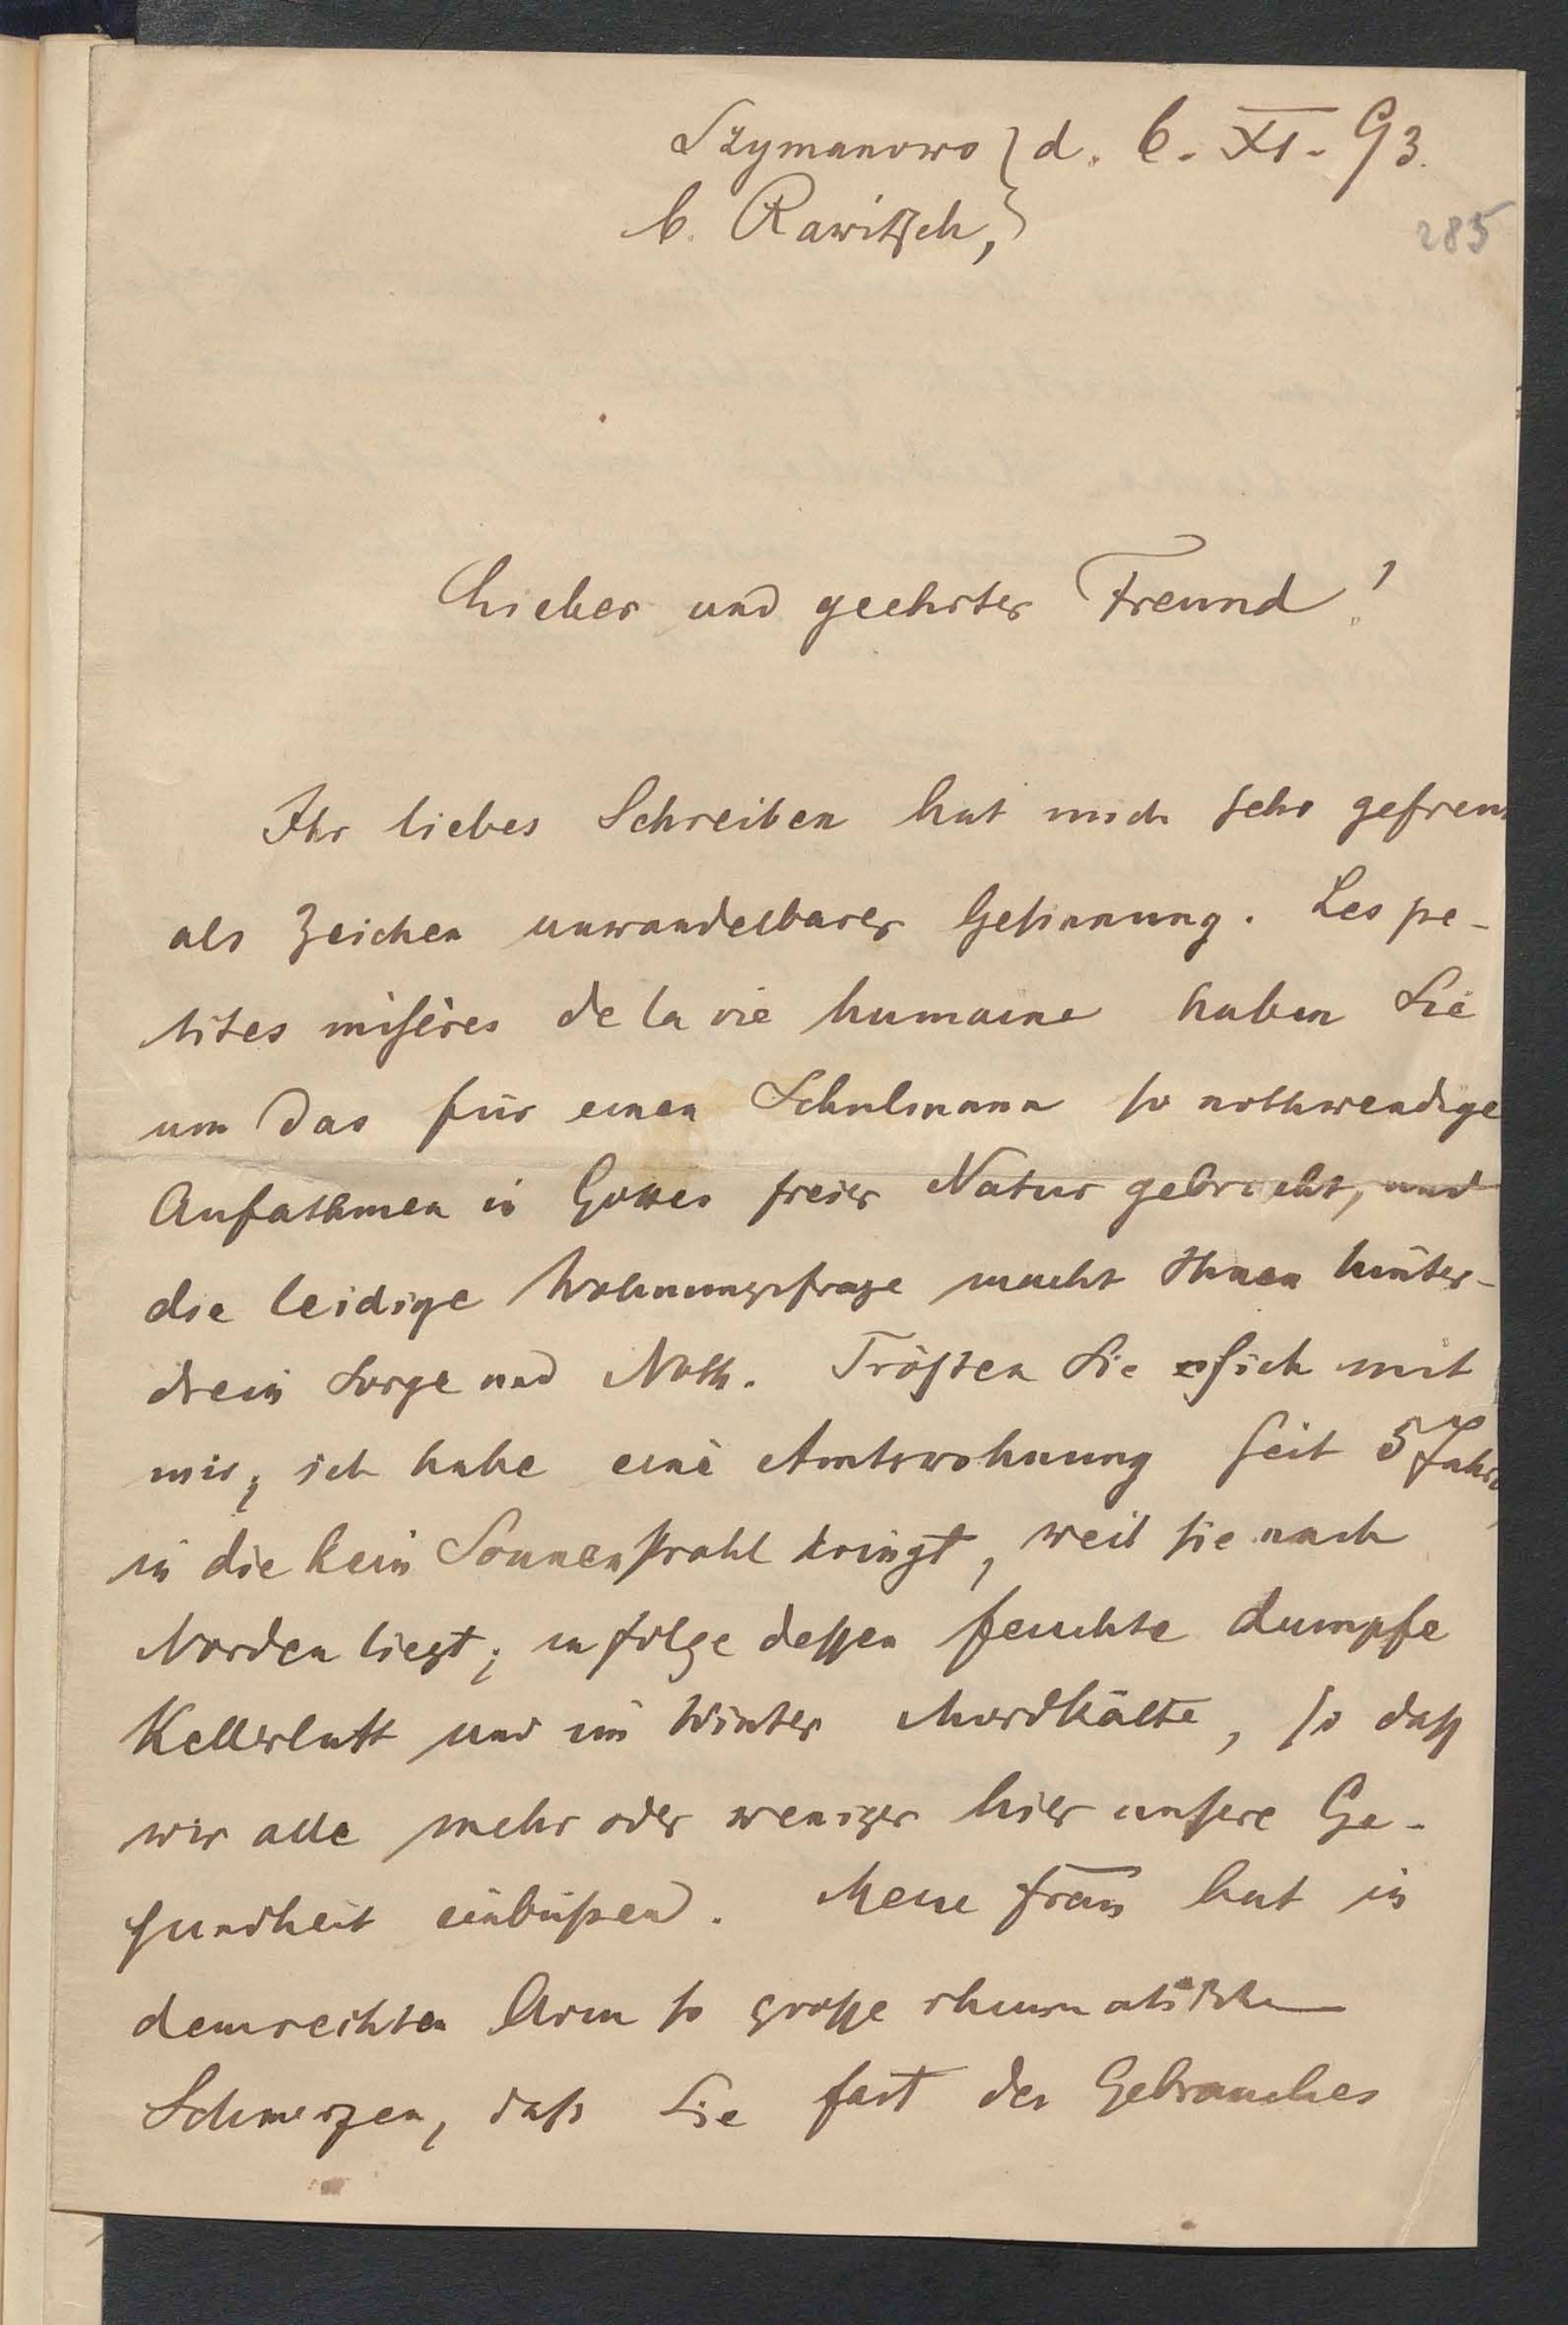 Szymanowo } d. 6. XI. 93.
b. Rawitsch, }
285
Lieber und geehrter Freund!
Ihr liebes Schreiben hat mich sehr gefreut
als Zeichen unwandelbarer Gesinnung. Les pe-
tites misères de la vie humaine haben Sie
um das für einen Schulmann so nothwendige
Aufathmen in Gottes freier Natur gebracht, und
die leidige Wohnungsfrage macht Ihnen hinter-
drein Sorge und Noth. Trösten Sie sich mit
mir; ich habe eine Amtswohnung seit 5 Jahren
in die kein Sonnenstrahl dringt, weil sie nach
Norden liegt; in folge dessen feuchte dumpfe
Kellerluft und im Winter Mordkälte, so dass
wir alle mehr oder weniger hier unsere Ge-
sundheit einbüßen. Meine Frau hat in
dem rechten Arm so grosse rheumatische
Schmerzen, daß Sie fast des Gebrauches